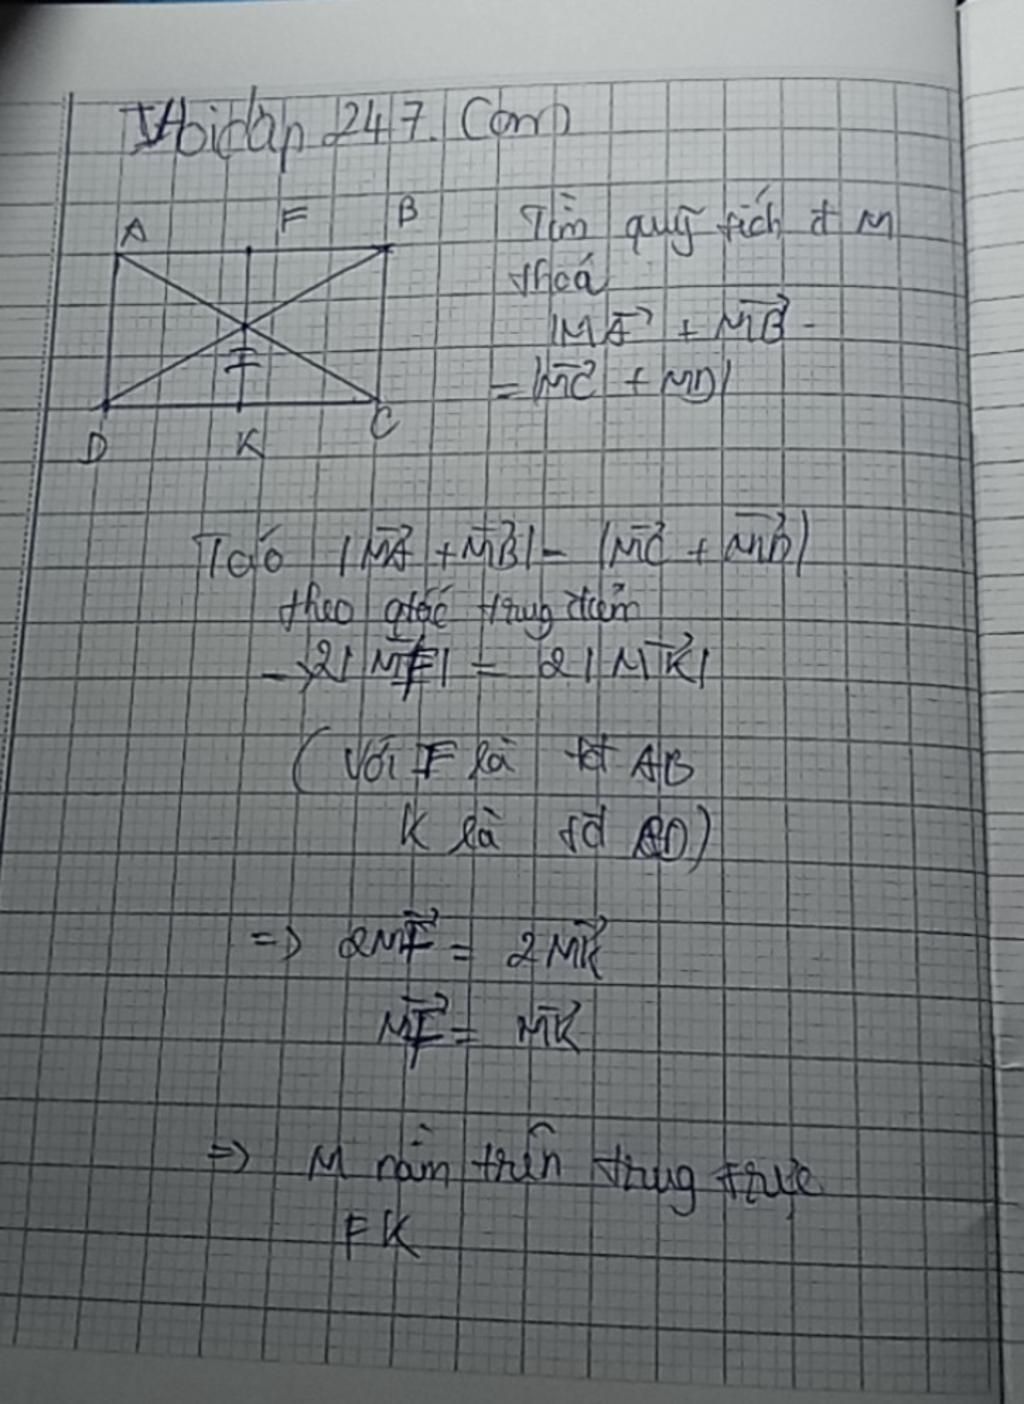 Hoidap 247. Com
A F B
I
D K C
Tìm quỹ tích đ M
thoả
|MA→ + MB→
= |MC→ + MD|
Tacó |MA→ + MB→| = |MC→ + MD→|
theo qtắc trug điểm
→ 2|MF→| = 2|MK→|
(Với F là tđ AB
K là tđ CD)
=> 2MF→ = 2MK→
MF→ = MK→
=> M nằm trên trug trực
FK